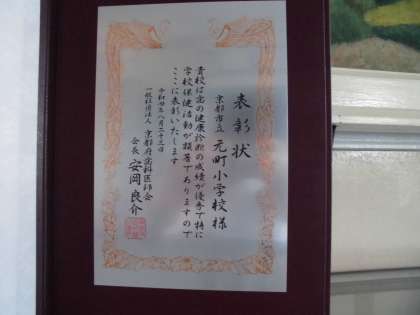 表彰状
京都市立 元町小学校様
貴校は歯の健康診断の成績が優秀で特に
学校保健活動が顕著でありますので
ここに表彰いたします
令和四年八月二十三日
一般社団法人 京都府歯科医師会
会長 安岡良介